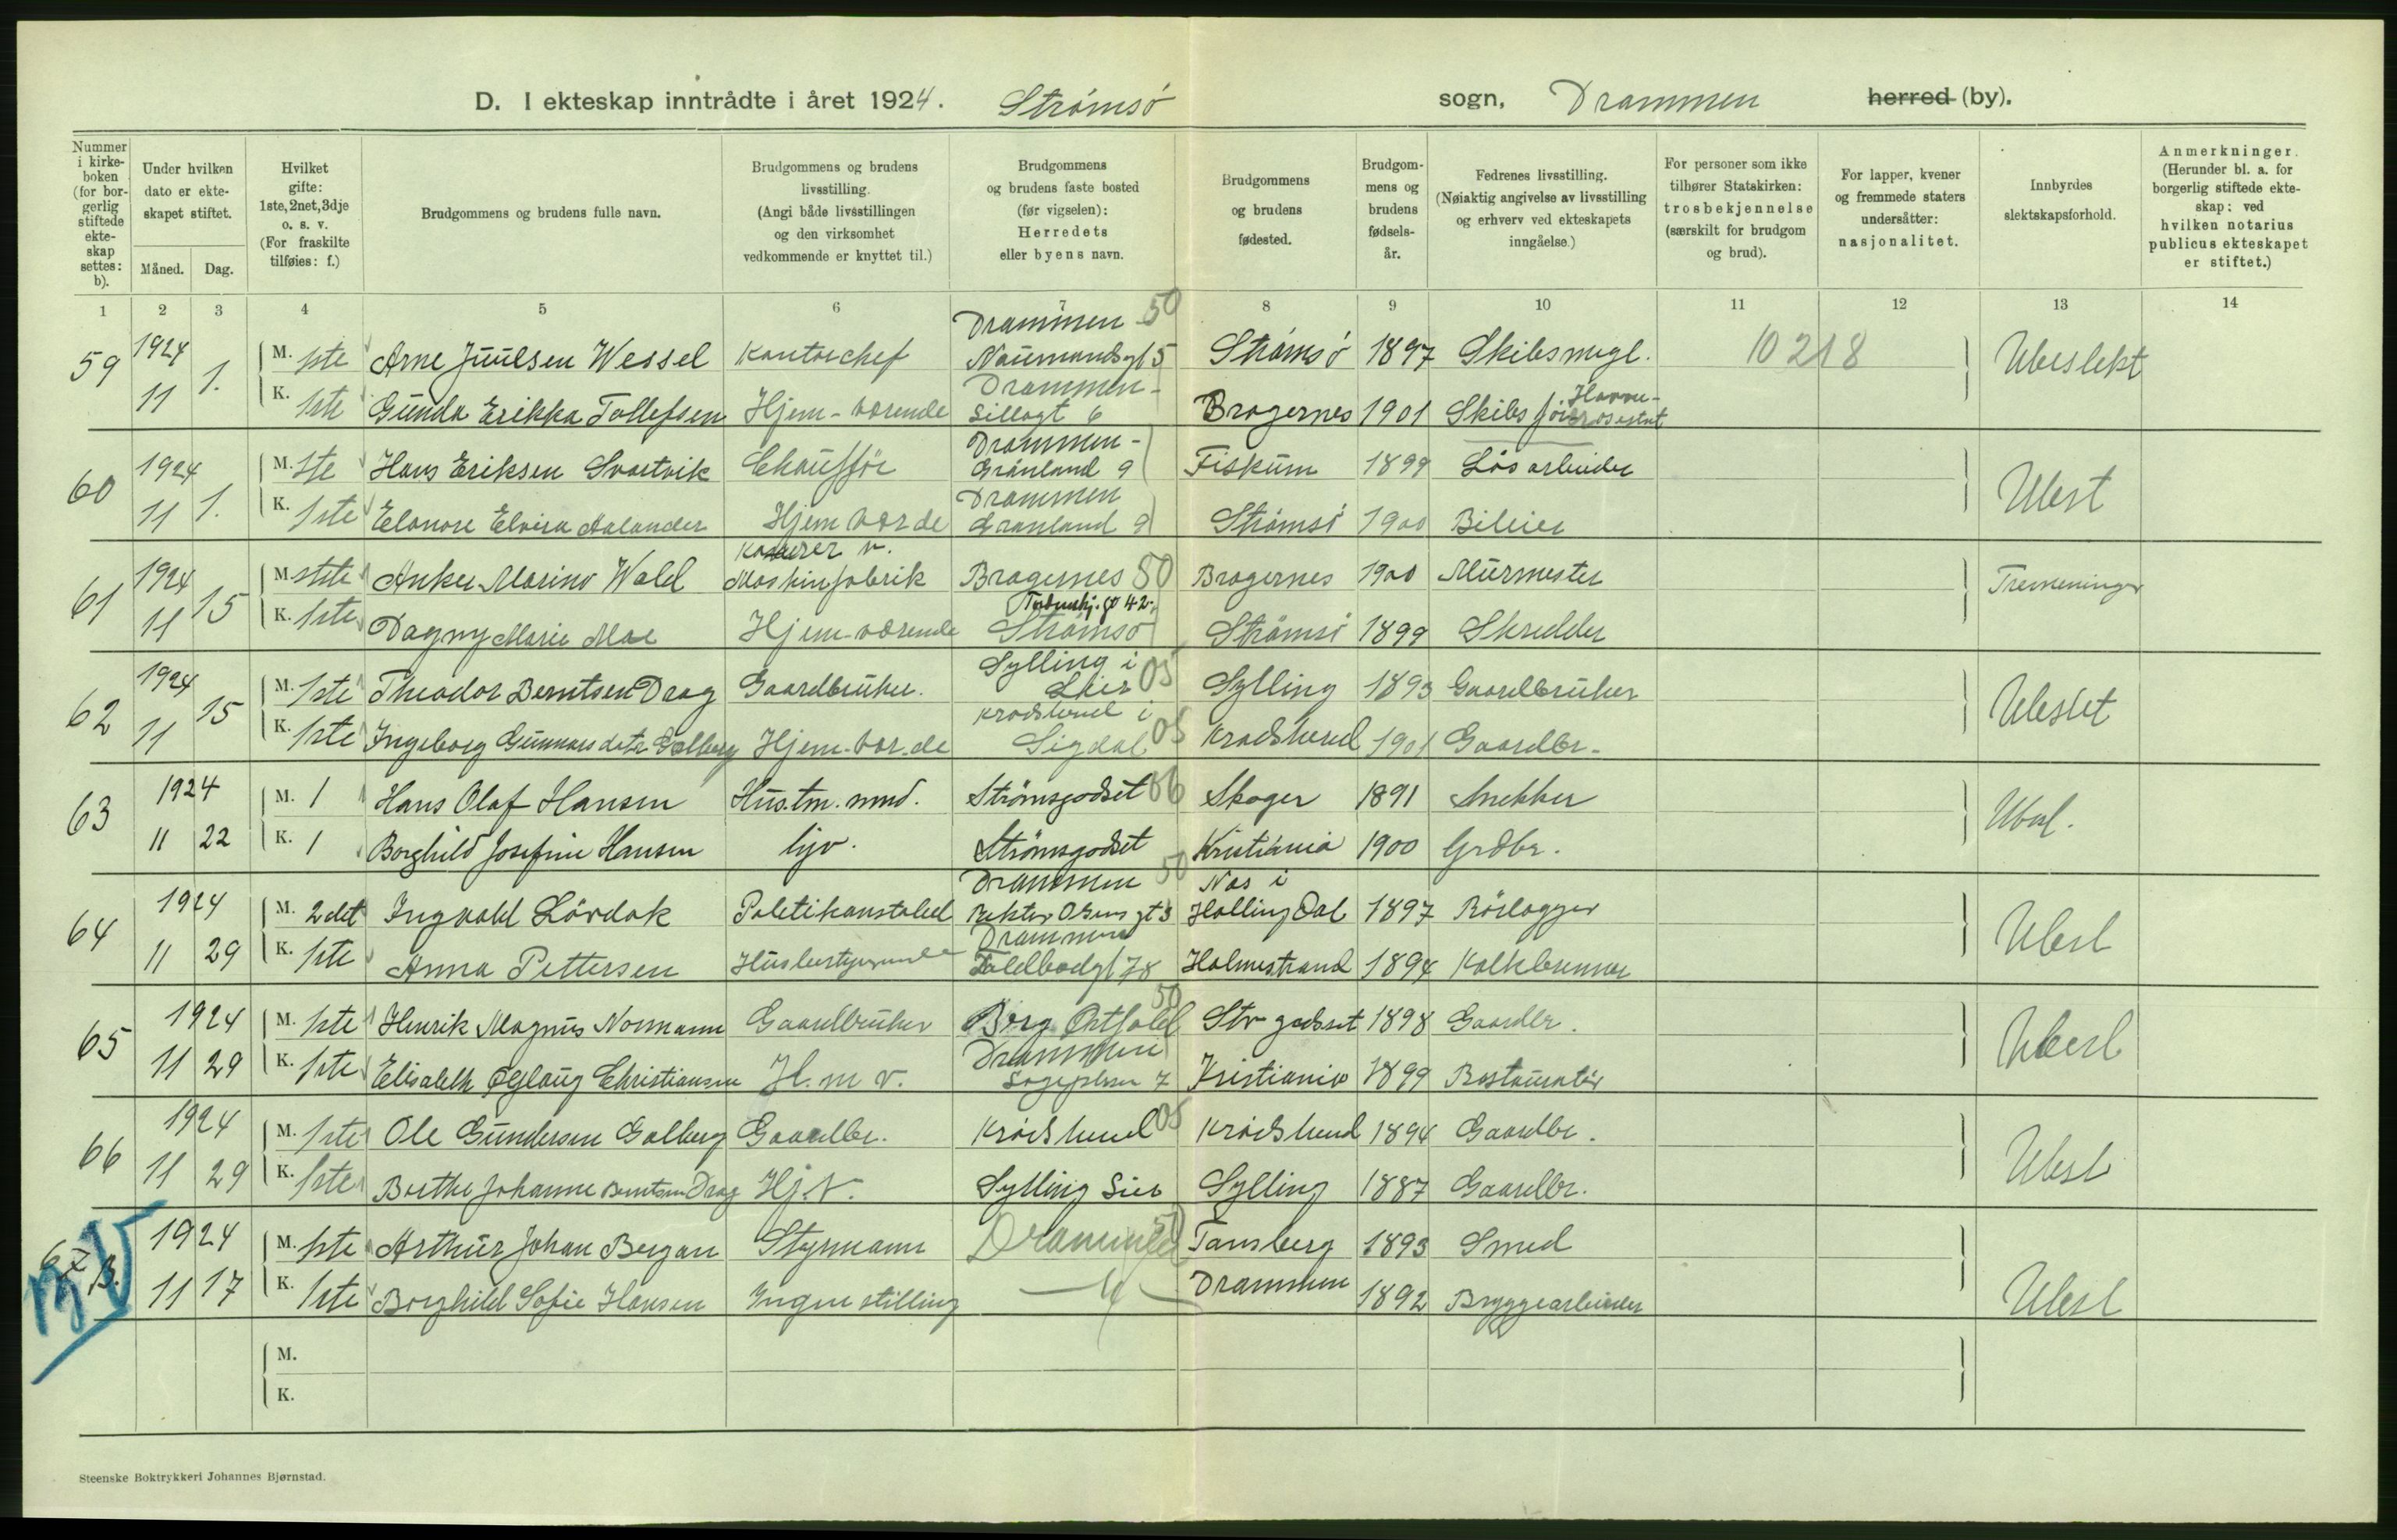 D. I ekteskap inntrådte i året 1924. Strømsö sogn, Drammen herred (by).
Nummer i kirke-boken (for bor-gerlig stiftede ekte-skap settes: b).
Under hvilken dato er ekte-skapet stiftet.
Måned. Dag.
Hvilket gifte: 1ste, 2net, 3dje o. s. v. (For fraskilte tilføies: f.)
Brudgommens og brudens fulle navn.
Brudgommens og brudens livsstilling. (Angi både livsstillingen og den virksomhet vedkommende er knyttet til.)
Brudgommens og brudens faste bosted (før vigselen): Herredets eller byens navn.
Brudgommens og brudens fødested.
Brudgom-mens og brudens fødsels-år.
Fedrenes livsstilling. (Nøiaktig angivelse av livsstilling og erhverv ved ekteskapets inngåelse.)
For personer som ikke tilhører Statskirken: trosbekjennelse (særskilt for brudgom og brud).
For lapper, kvener og fremmede staters undersåtter: nasjonalitet.
Innbyrdes slektskapsforhold.
Anmerkninger. (Herunder bl. a. for borgerlig stiftede ekte-skap: ved hvilken notarius publicus ekteskapet er stiftet.)
1 2 3 4 5 6 7 8 9 10 11 12 13 14
Drammen 50
59 1924 M. 1ste Arne Juulsen Wessel Kontorchef Naumandsgt 5 Strømsö 1897 Skibsmegl. 10218 Ubeslekt
Drammen -
11 1. K. 1ste Gunda Erikka Tollefsen Hjem-værende 6 Bragernes 1901 Skibs
Drammen -
60 1924 M. 1ste Hans Eriksen Svartvik Chaufför Grønland 9 Fiskum 1899 Lösarbeider Ubesl
Drammen
11 1. K. 1ste Elonore Elvira Aalander Hjem værde Grønland 9 Strømsö 1900 Bileier
Kasserer v.
61 1924 M. 1ste Anker Marino Wold Maskinfabrik Bragernes 50 Bragernes 1900 Murmester Tremeninger
11 15 K. 1ste Dagny Marie Moe Hjem-værende Strømsö Strømsö 1899 Skredder
Sylling i
62 1924 M. 1ste Theodor Berntsen Drag Gaardbruker. Lier 05 Sylling 1893 Gaardbruker Ubeslet
Krødsherred i
11 15 K. 1ste Ingeborg Gunnarsdatr Golberg Hjem-vær.de Sigdal 05 Krødsherred 1901 Gaardbr.
63 1924 M. 1 Hans Olaf Hansen Hus.tm.mnd. Strömsgodset 06 Skoger 1891 Snekker Ubesl.
11 22 K. 1 Borghild Josefine Hansen hjv. Strömsgodset Kristiania 1900 Grdbr.
Drammen 50 Nes i
64 1924 M. 2det Ingvald Lördok Politikonstabel Rektor Olsens gt 3 Hallingdal 1897 Rörlegger Ubesl
Drammen
11 29 K. 1ste Anna Pettersen Husbestyrerinde Toldbodgt 78 Holmestrand 1894 Kalkbrenner
50
65 1924 M. 1ste Henrik Magnus Normann Gaardbruker Borg Østfold Str godset 1898 Gaardbr. Ubesl
Drammen
11 29 K. 1ste Elisabeth Øglaug Christiansen H.m v. 7 Kristiania 1899 Restauratör
66 1924 M. 1ste Ole Gundersen Golberg Gaardbr. Krødsherred 05 Krødsherred 1894 Gaardbr. Ubesl
11 29 K. 1ste Berthe Johanne Berntsen Drag Hj.v. Sylling Lier Sylling 1887 Gaardbr.
67 B. 1924 M. 1ste Arthur Johan Bergan Styrmann Drammen 50 Tønsberg 1893 Smed Ubesl
11 17 K. 1ste Borghild Sofie Hansen Ingen stilling — " — Drammen 1892 Bryggearbeider
M.
K.
Steenske Boktrykkeri Johannes Bjørnstad.